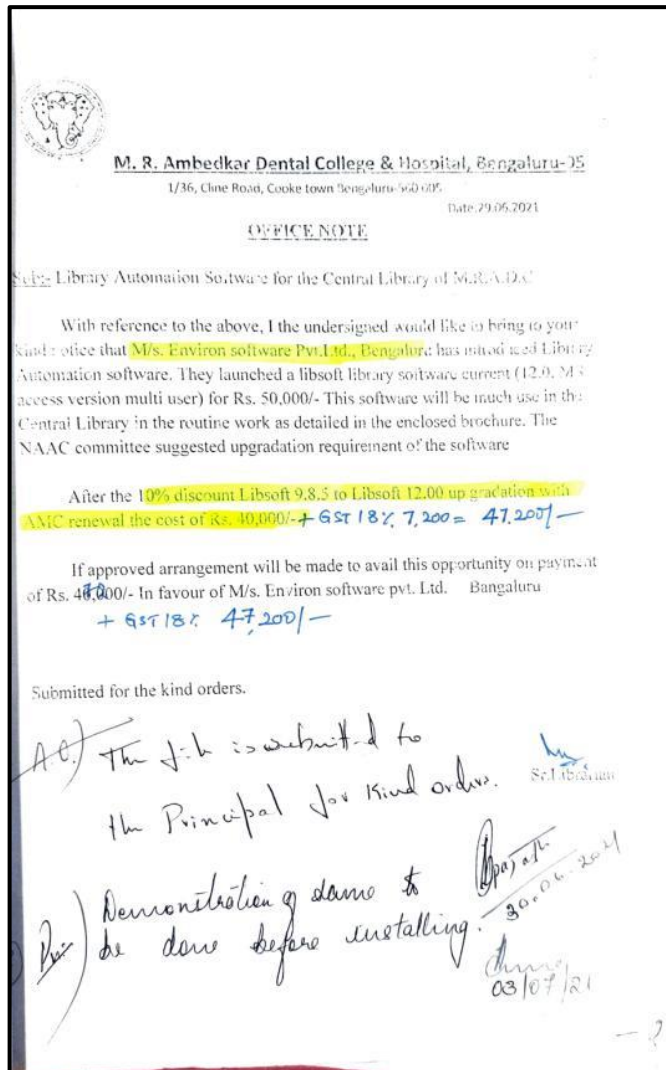 M. R. Ambedkar Dental College & Hospital, Bengaluru-05
1/36, Cline Road, Cooke town Bengaluru-560 005
Date:29.06.2021
OFFICE NOTE
Sub:- Library Automation Software for the Central Library of M.R.A.D.C
With reference to the above, I the undersigned would like to bring to your
kind notice that M/s. Environ software Pvt.Ltd., Bengaluru has introduced Library
Automation software. They launched a libsoft library software current (12.0. M s
access version multi user) for Rs. 50,000/- This software will be much use in the
Central Library in the routine work as detailed in the enclosed brochure. The
NAAC committee suggested upgradation requirement of the software
After the 10% discount Libsoft 9.8.5 to Libsoft 12.00 up gradation with
AMC renewal the cost of Rs. 40,000/- + GST 18% 7,200 = 47,200/-
If approved arrangement will be made to avail this opportunity on payment
of Rs. 40,000/- In favour of M/s. Environ software pvt. Ltd. Bangaluru
+ GST 18% 47,200/-
Submitted for the kind orders.
A.O.) The file is submitted to
the Principal for Kind orders.
Sr.Librarian
30.06.2021
Demonstration of same to
be done before installing.
03/07/21